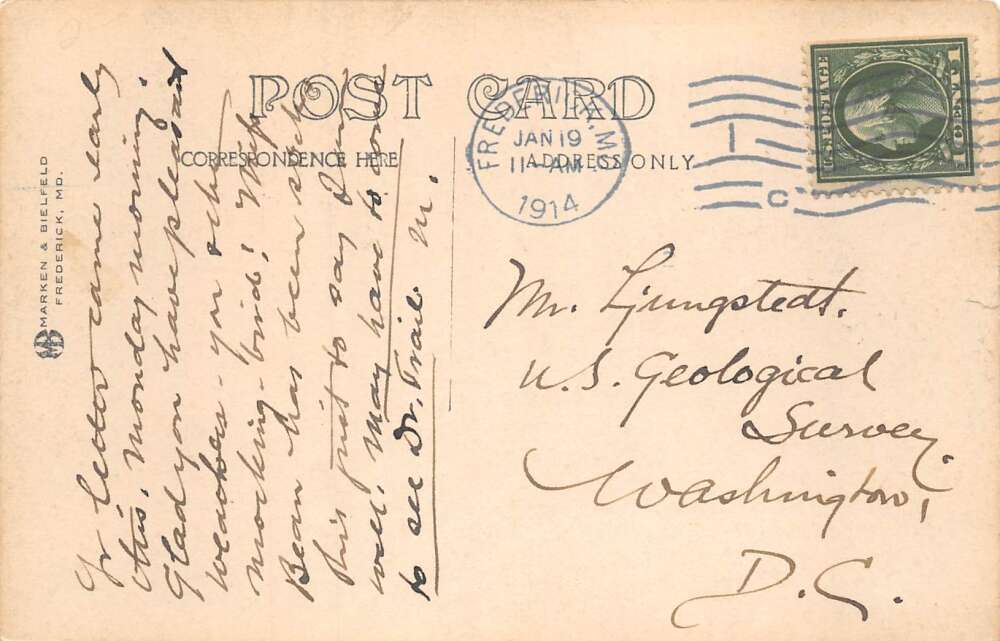 POST CARD
CORRESPONDENCE HERE
ADDRESS ONLY
FREDERICK, M
JAN 19
11-AM
1914
C
U.S. POSTAGE
1 CENT 1
MARKEN & BIELFELD
FREDERICK, MD.
Yr letter came early
this, Monday morning.
Glad you have pleasant
weather - you & the
mocking-bird! Wap
Bean has been sick
This just to say I'm
well. May have to come
to see Dr. Trail. M.
Mr. Ljungstedt.
U.S. Geological
Survey.
Washington,
D.C.